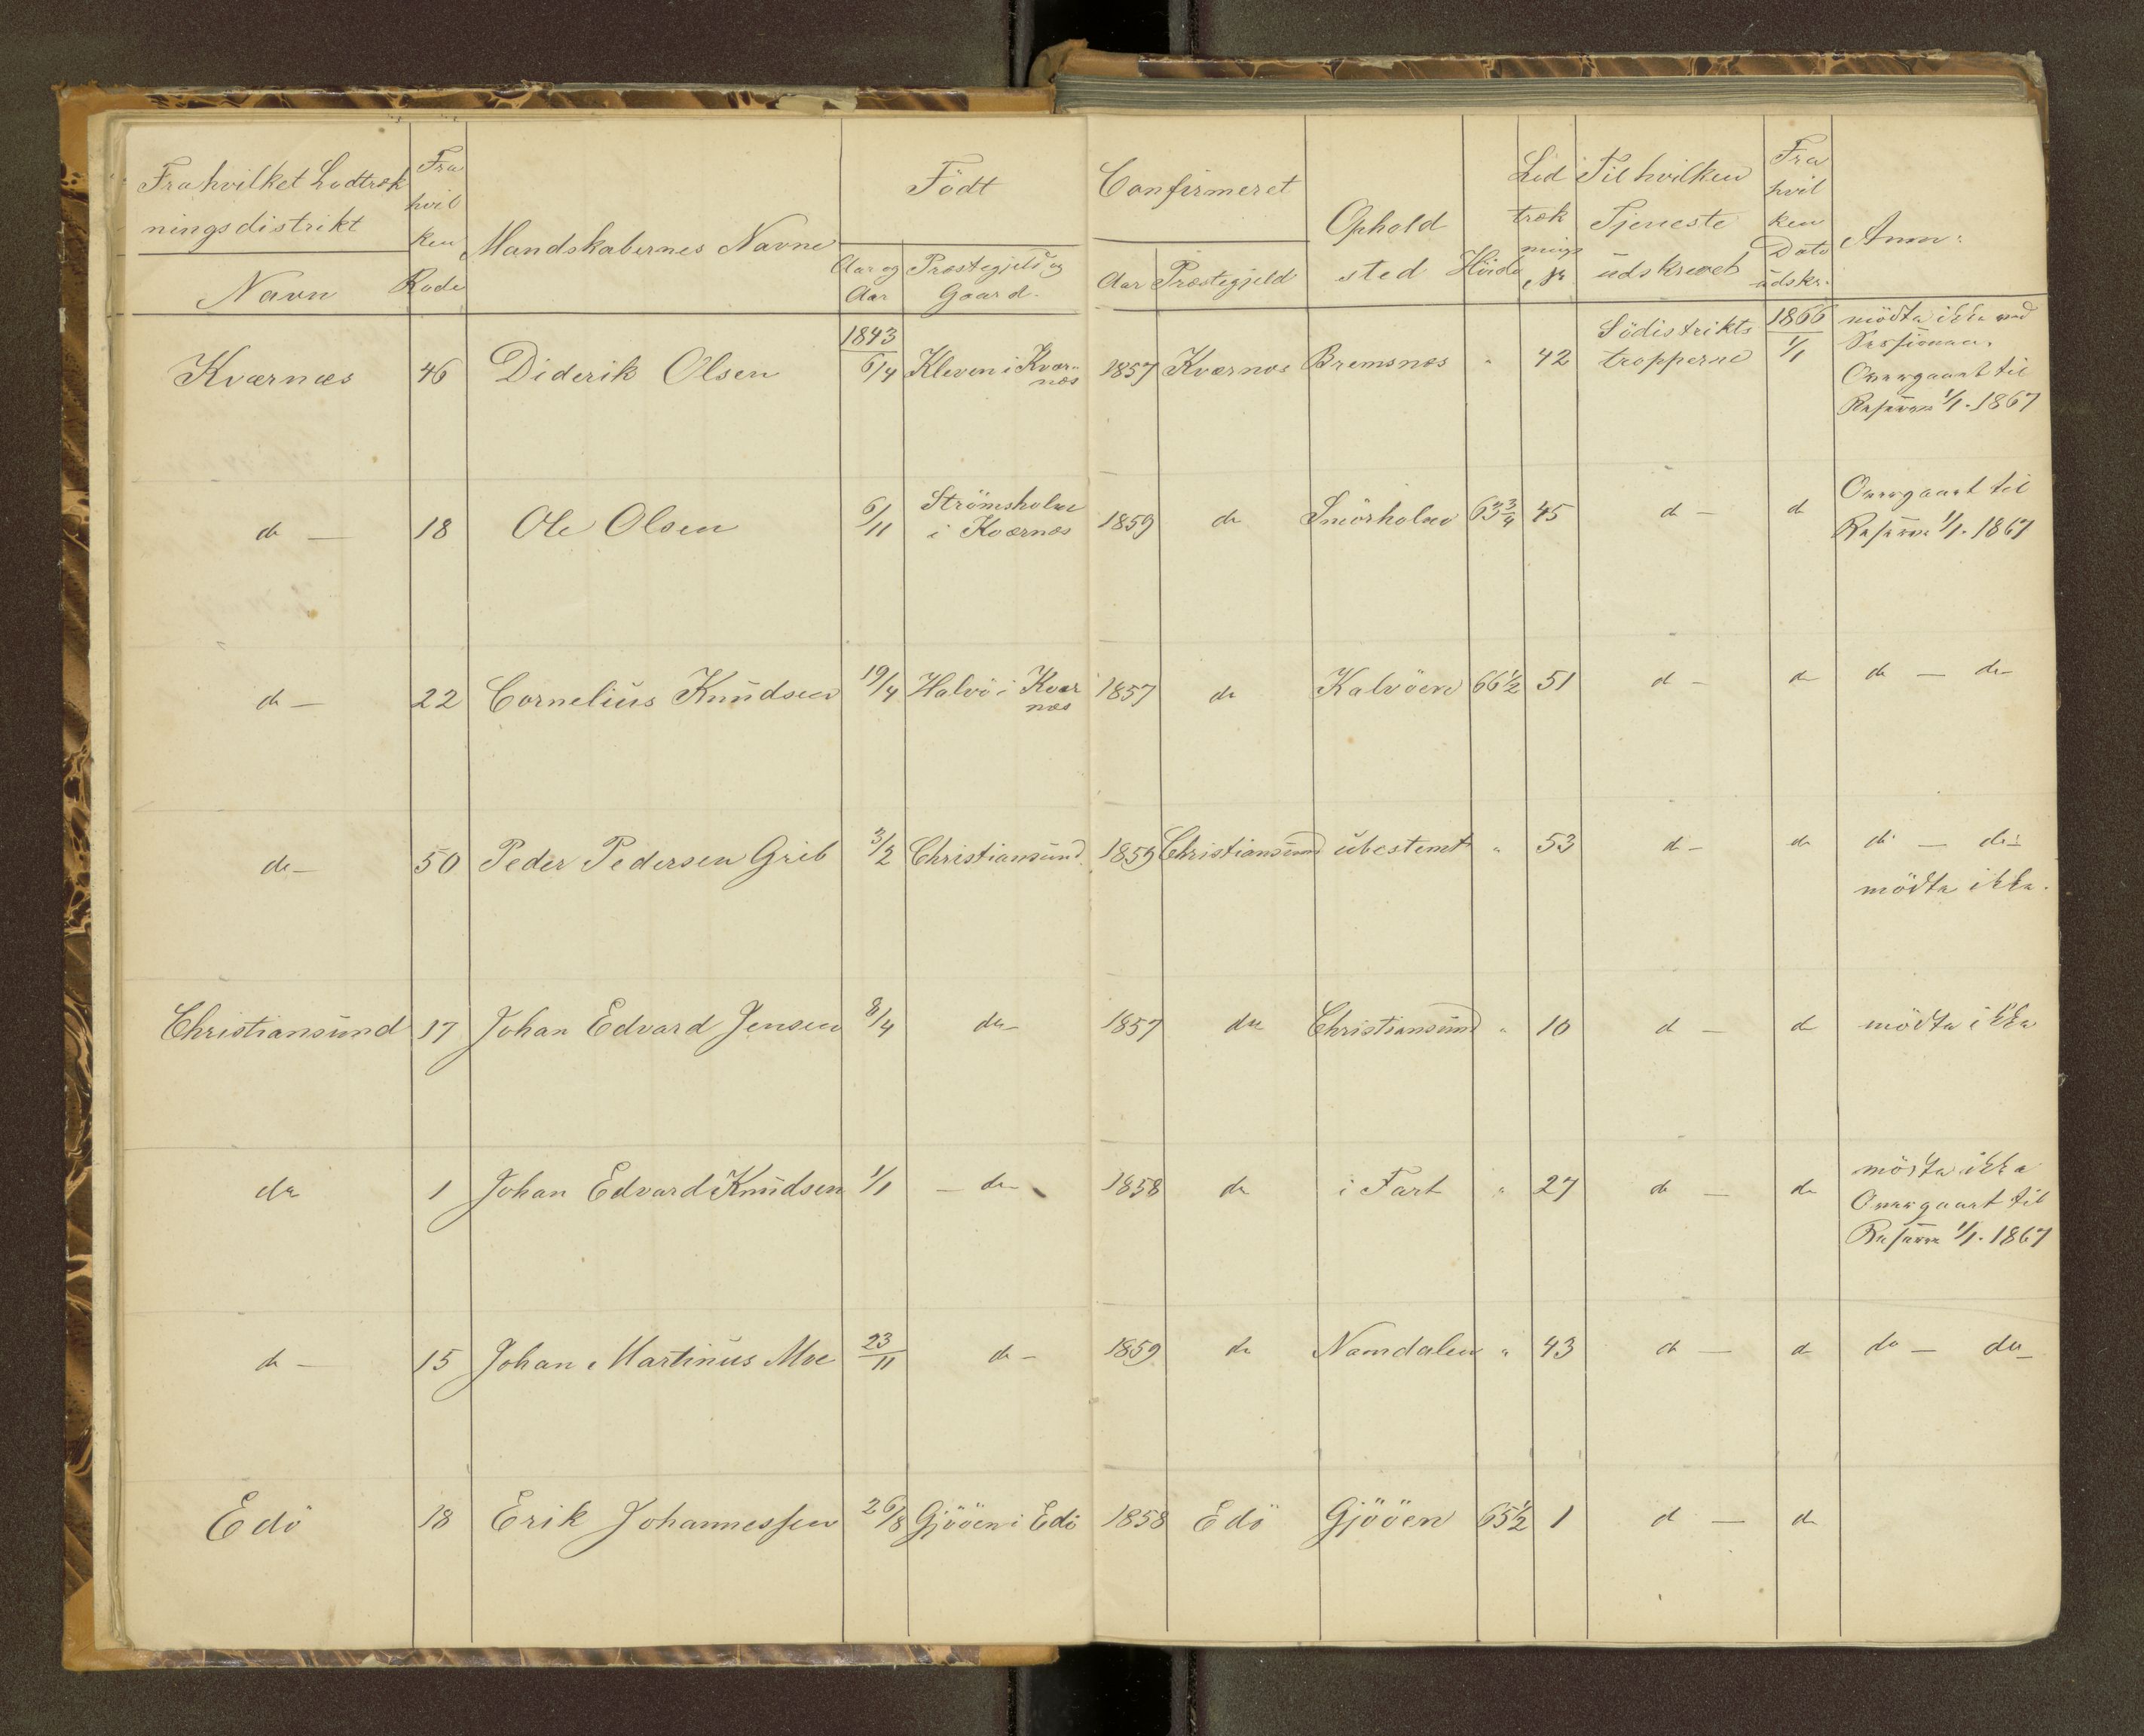 Fra hvilket Lodtræk
ningsdistrikt
Navn
Fra
hvil
ken
Rode
Mandskabernes Navne
Födt
Aar og
Aar
Præstegjeld og
Gaard.
Confirmeret
Aar Præstegjeld
Ophold
sted
Höide
Lod
træk
nings
Nr
Til hvilken
Tjeneste
udskrevet
Fra
hvil
ken
Dato
udskr.
Anm:
Kværnæs 46 Diderik Olsen 1843 6/4 Kleven i Kvær-
næs
1857 Kværnæs Bremsnæs " 42 Södistrikts
tropperne
1866
1/1
mödte ikke ved
Sessionen.
Overgaaet til
Reserven 1/1. 1867
do — 18 Ole Olsen 6/11 Strömsholm
i Kværnæs
1859 do Smörholm 63 3/4 45 do — do
Overgaaet til
Reserven 1/1. 1867
do — 22 Cornelius Knudsen 19/4 Halvö i Kvær
næs
1857 do Kalvöen 66 1/2 51 do — do do — do
do — 50 Peder Pedersen Grib 3/2 Christiansund 1859 Christiansund ubestemt " 53 do — do do — do
mödte ikke.
Christiansund 17 Johan Edvard Jensen 8/4 do — 1857 do Christiansund " 10 do — do mödte ikke
do 1 Johan Edvard Knudsen 1/1 — do — 1858 do i Fart " 27 do — do mödte ikke
Overgaaet til
Reserven 1/1. 1867
do — 15 Johan Martinus Moe 23/11 do — 1859 do Namdalen " 43 do — do do — do —
Edö 18 Erik Johannessen 26/8 Gjööen i Edö 1858 Edö Gjööen 65 1/2 1 do — do